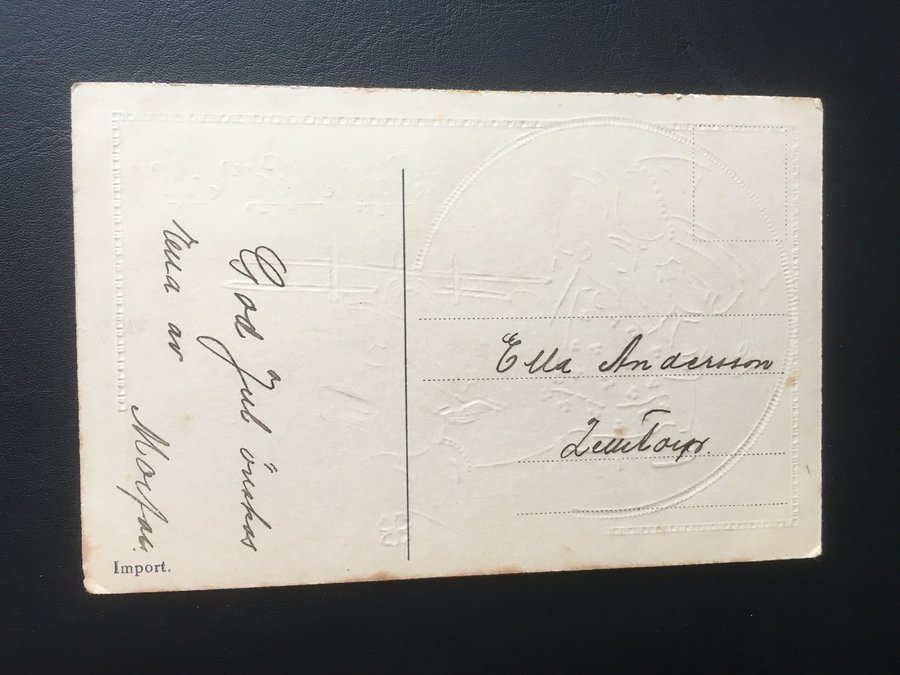 God Jul önskas
Ella av
Morfar.
Import.
Ella Andersson